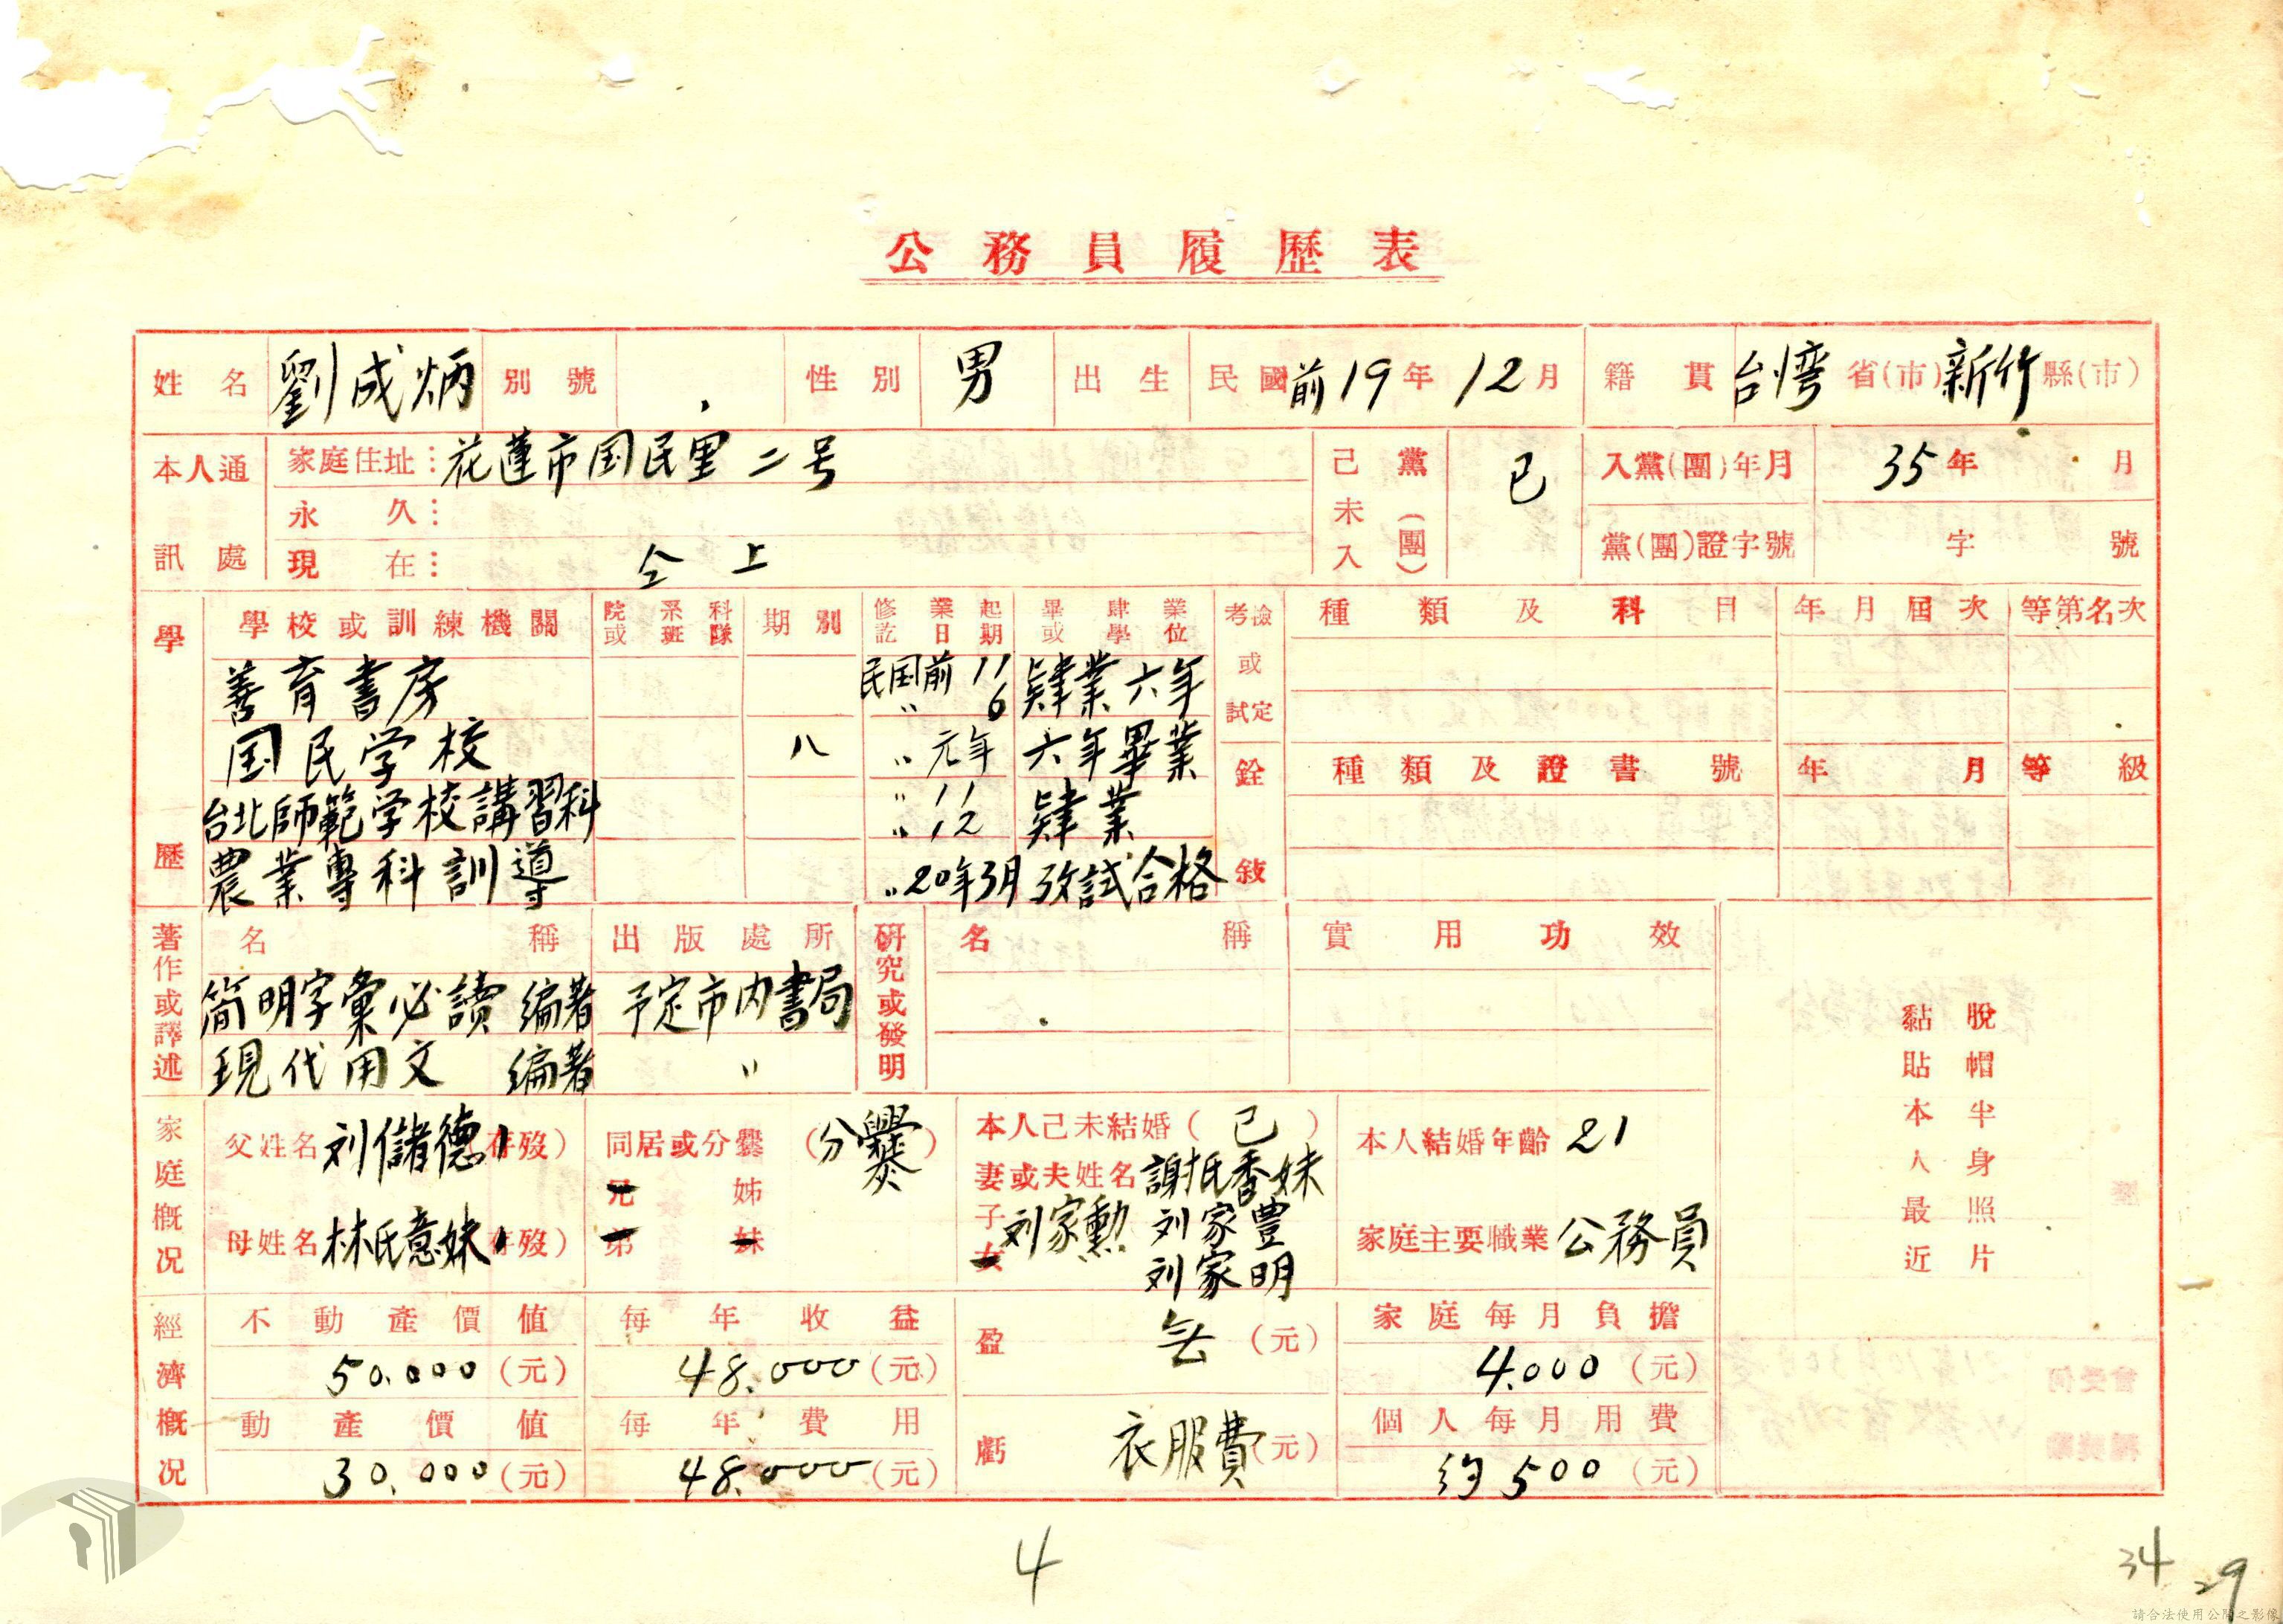 公務員履歷表
姓名 劉成炳 別號 性別 男 出生 民國前19年12月 籍貫 台湾省(市)新竹縣(市)
本人通訊處 家庭住址：花蓮市国民里二号
永久：
現在：仝上
已未入黨(團) 已 入黨(團)年月 35年 月
黨(團)證字號 字 號
學歷 學校或訓練機關 院或 系班 科隊 期別 修業起訖日期 畢業或肄業學位
善育書房 民国前11 〃6 肄業六年
国民学校 八 〃元年 六年畢業
台北師範学校講習科 〃11 〃12 肄業
農業專科訓導 〃20年3月 攷試合格
考試或檢定 種類及科目 年月屆次 等第名次
銓敘 種類及證書號 年月 等級
著作或譯述 名稱 出版處所
简明字彙必讀 編著 予定市內書局
現代用文 編著 〃
研究或發明 名稱 實用功效
脫帽半身照片
黏貼本人最近
家庭概況 父姓名 刘儲德 (存歿) 同居或分爨 (分爨)
母姓名 林氏意妹 (存歿) 兄弟 姊妹
本人已未結婚(已) 本人結婚年齡 21
妻或夫姓名 謝氏香妹
子女 刘家勳 刘家豊
刘家明
家庭主要職業 公務員
經濟概況 不動產價值 每年收益 盈 䒑(元) 家庭每月負擔
50.000(元) 48.000(元) 4.000(元)
動產價值 每年費用 虧 衣服費(元) 個人每月用費
30.000(元) 48.000(元) 約500(元)
4
34
29
請合法使用公開之影像